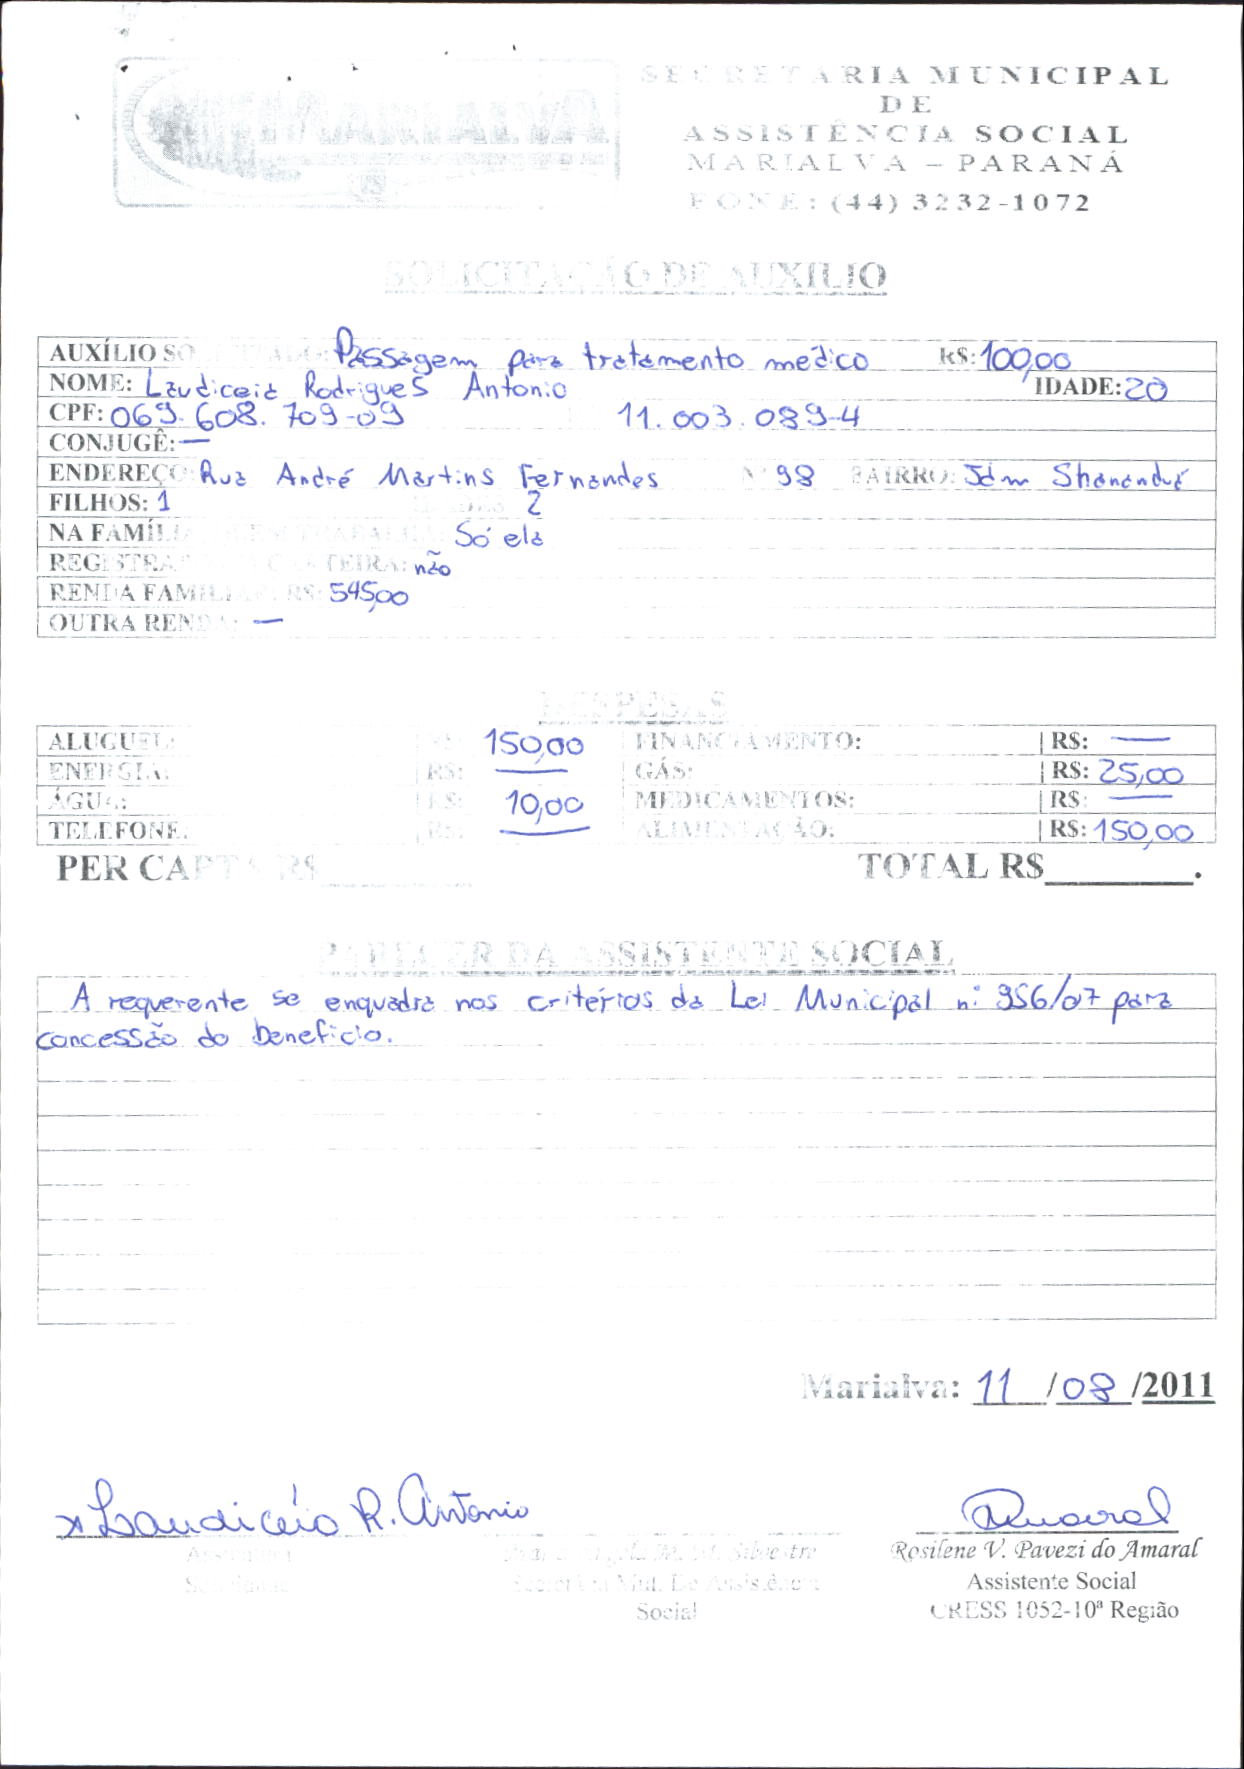 SECRETARIA MUNICIPAL
DE
ASSISTÊNCIA SOCIAL
MARIALVA – PARANÁ
FONE: (44) 3232-1072
SOLICITAÇÃO DE AUXÍLIO
AUXÍLIO SOLICITADO: Passagem para tratamento médico R$: 100,00
NOME: Laudiceia Rodrigues Antonio IDADE: 20
CPF: 069.608.709-09 11.003.089-4
CONJUGÊ: —
ENDEREÇO: Rua André Martins Fernandes Nº 98 BAIRRO: Jdm Shanandué
FILHOS: 1 2
NA FAMÍLIA TRABALHA: Só ela
REGISTRA CARTEIRA: não
RENDA FAMILIAR R$: 545,00
OUTRA RENDA: —
DESPESAS
ALUGUEL: R$: 150,00 FINANCIAMENTO: R$: —
ENERGIA: R$: — GÁS: R$: 25,00
ÁGUA: R$: 10,00 MEDICAMENTOS: R$: —
TELEFONE: R$: — ALIMENTAÇÃO: R$: 150,00
PER CAPTA R$ TOTAL R$________.
PARECER DA ASSISTENTE SOCIAL
A requerente se enquadra nos critérios da Lei Municipal nº 956/07 para
concessão do benefício.
Marialva: 11 /08 /2011
x Laudicéia R. Antonio RAmaral
Assinatura M. M. Silvestre Rosilene V. Pavezi do Amaral
Secretária Mul. De Assistência Assistente Social
Social CRESS 1052-10ª Região